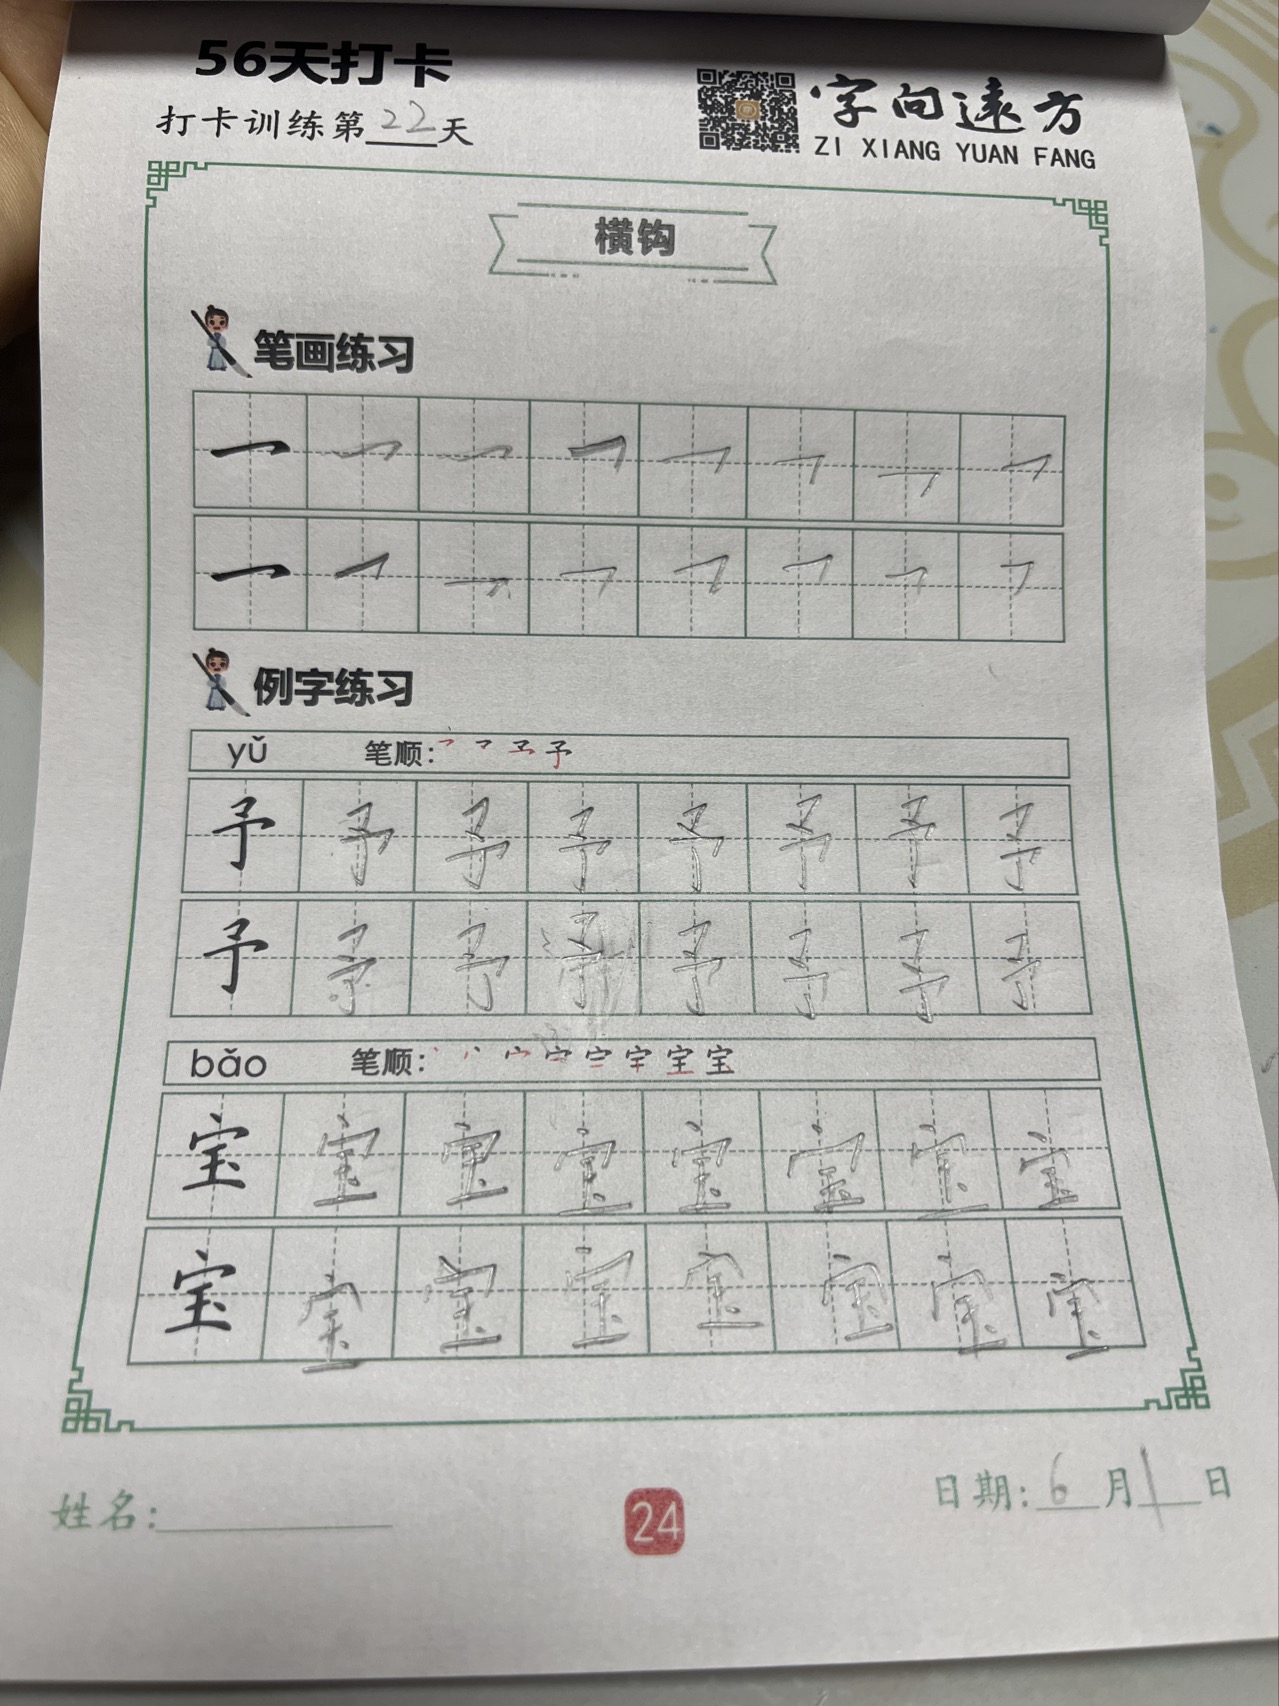 56天打卡
打卡训练第22天
字向远方
ZI XIANG YUAN FANG
横钩
笔画练习
例字练习
yǔ 笔顺: 予
予 予 予 予 予 予 予 予
予 予 予 予 予 予 予 予
bǎo 笔顺: 宝
宝 宝 宝 宝 宝 宝 宝 宝
宝 宝 宝 宝 宝 宝 宝 宝
姓名:
24
日期:6月1日